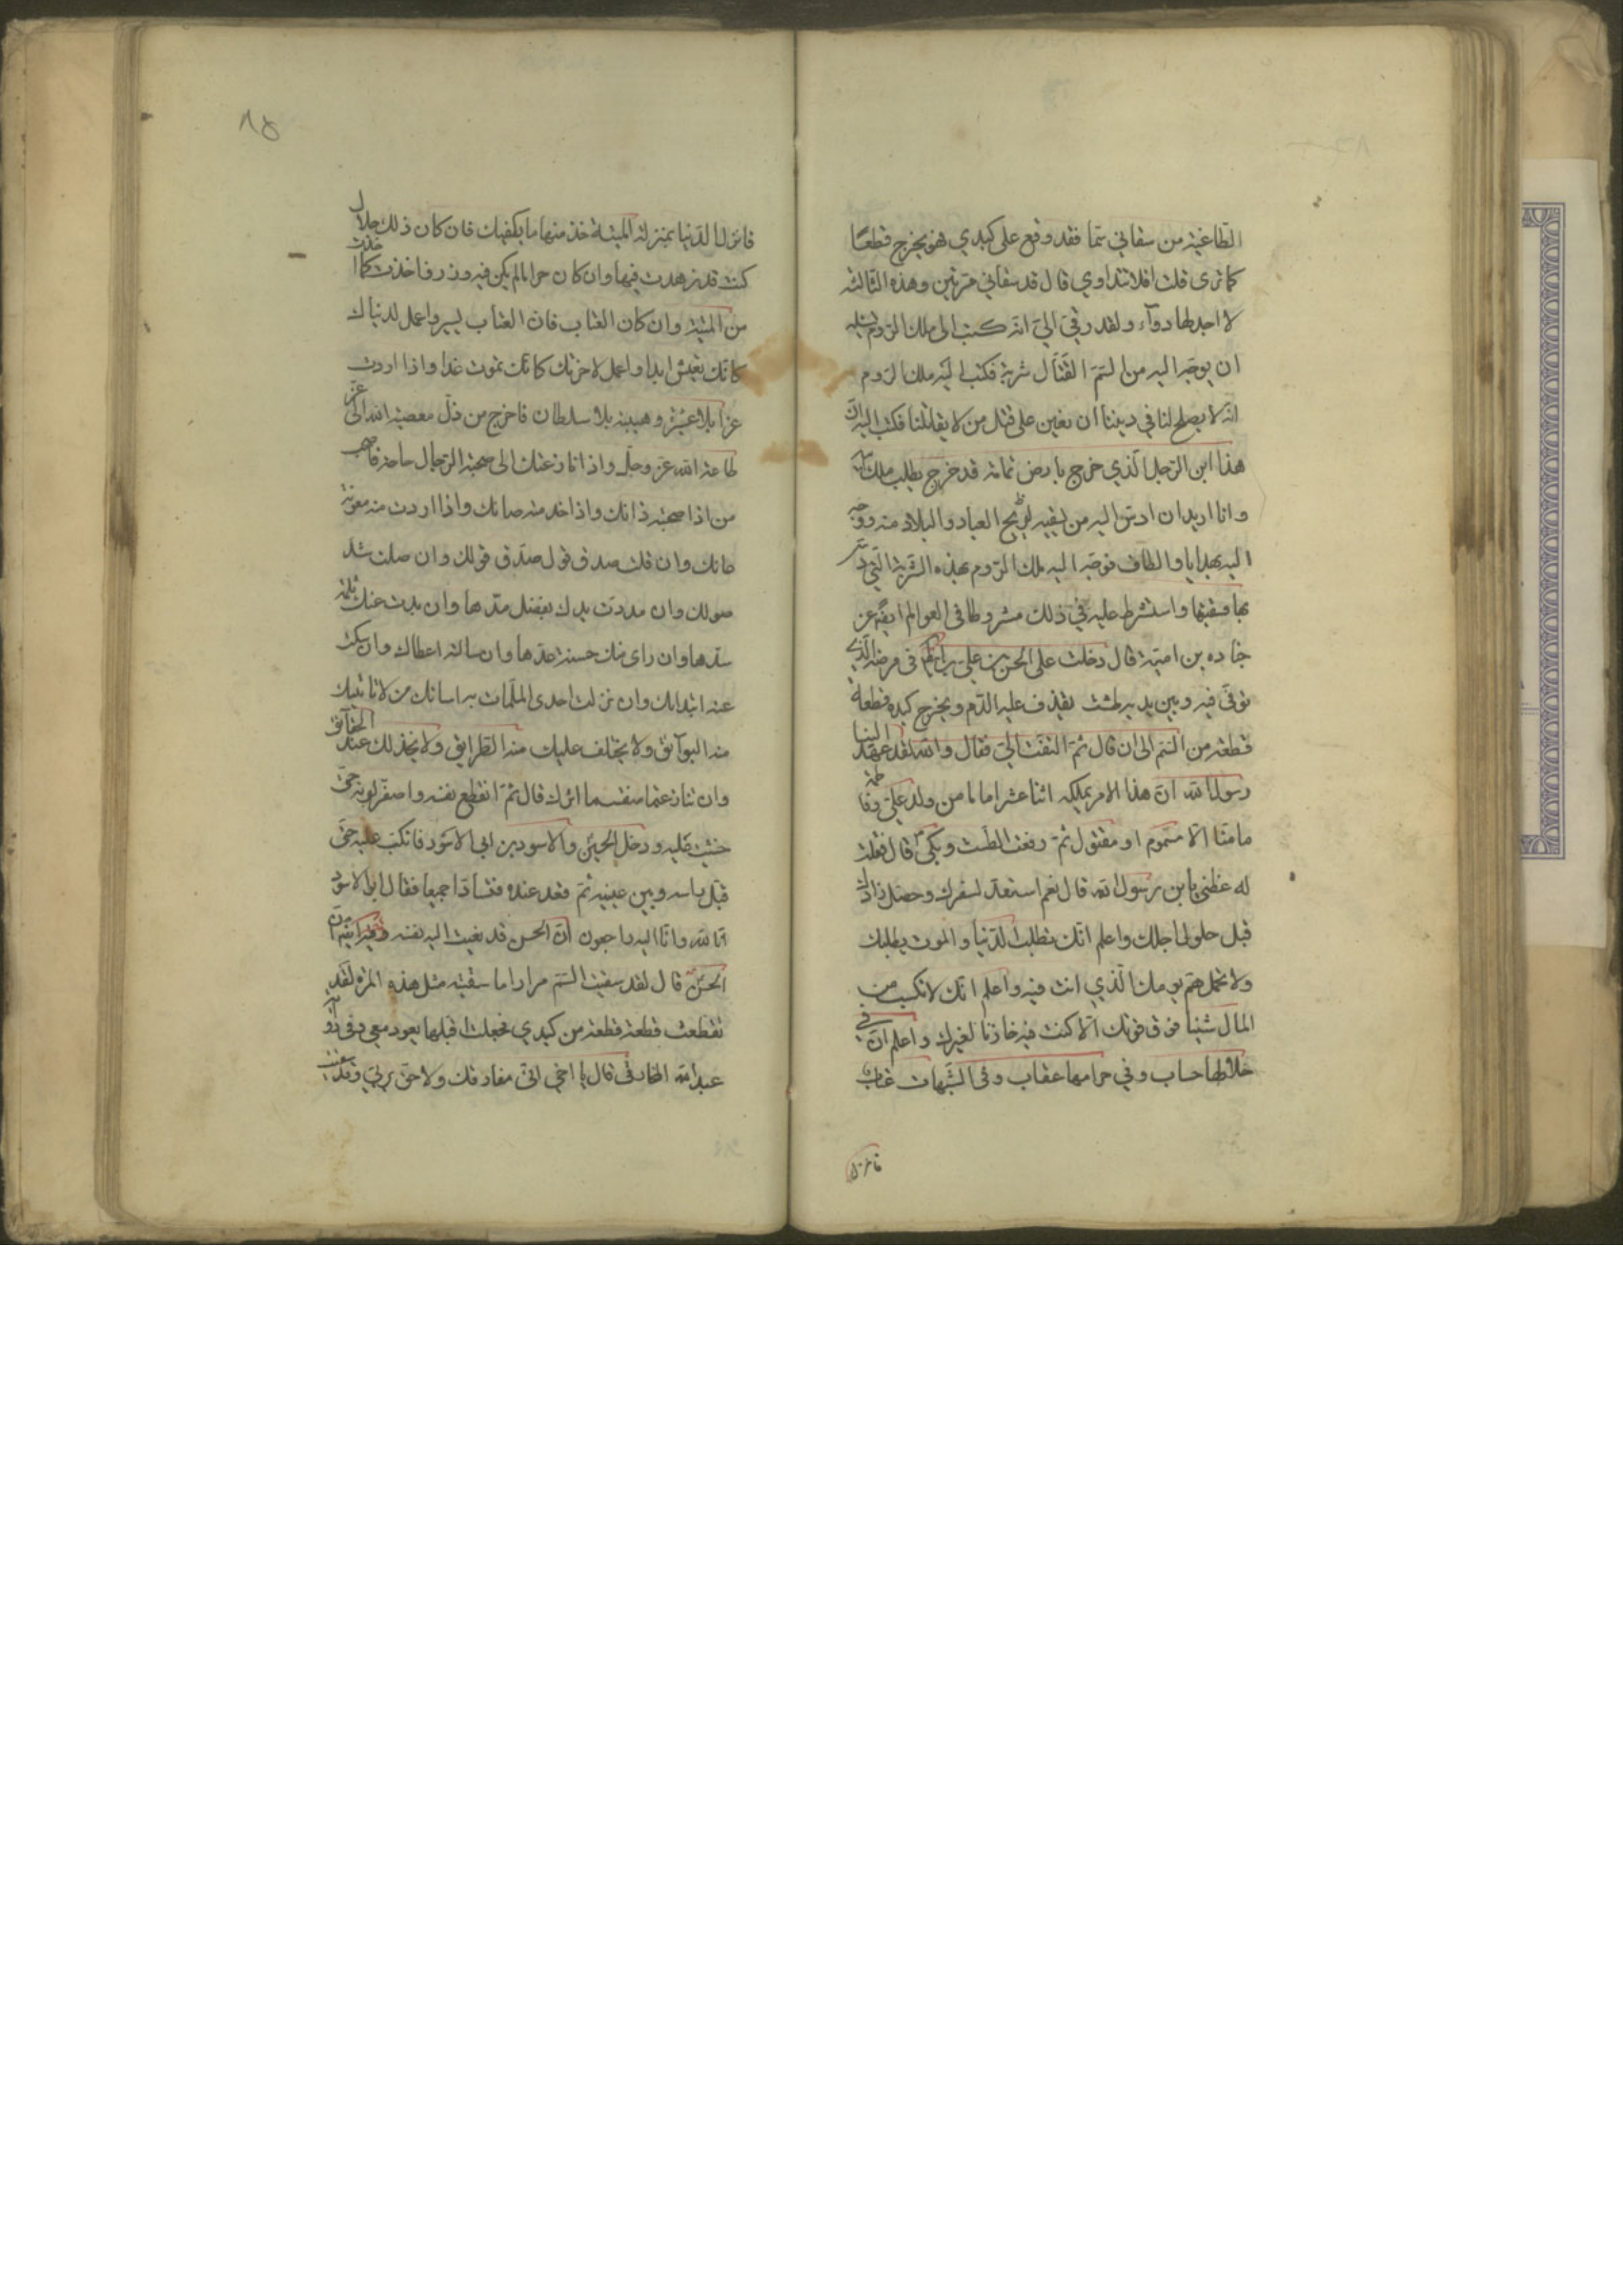 الطاغية من سقاني سمّا فقد وقع على كبدي فهو يخرج قطعًا
كما ترى قلت افلا تتداوي قال قد سقاني مرتين وهذه الثالثة
لا اجد لها دوآء ولقد رقى الىّ انه كتب الى ملك الروم يسئله
ان يوجه اليه من السمّ القتّال شربة فكتب اليه ملك الروم
انه لا يصلح لنا في ديننا ان نعين على قتل من لا يقاتلنا فكتب اليه انّ
هذا ابن الرجل الّذي خرج بارض تهامة قد خرج يطلب ملك ابيه
وانا اريد ان ادسّ اليه من يسقيه فاريح العباد والبلاد منه ووجه
اليه بهدايا والطاف فوجه اليه ملك الروم بهذه الشربة الّتي دسّ
بها فسقيتها واشترط عليه في ذلك شروطا في العوالم ايضًا عن
جناده بن امية قال دخلت على الحسن بن علي بن ابيطالب في مرضه الّذي
توفّى فيه وبين يديه طشت يقذف عليه الدّم ويخرج كبده قطعة
قطعة من السّم الى ان قال ثمّ التفت الىّ فقال والله لقد عهد الينا
رسول الله انّ هذا الامر يملكه اثنا عشر اماما من ولد علىّ وفاطمة
ما منّا الّا مسموم او مقتول ثمّ رفعت الطست وبكى قال فقلت
له عظني يابن رسول الله قال نعم استعدّ لسفرك وحصّل زادك
قبل حلول اجلك واعلم انّك تطلب الدّنيا والموت يطلبك
ولا تحمل همّ يومك الّذي انت فيه واعلم انّك لا تكسب من
المال شيئا فوق قوتك الّا كنت فيه خازنا لغيرك واعلم انّ في
حلالها حساب وفي حرامها عقاب وفى الشّبهات عتاب
فانزل
٨٥
فانزل الدّنيا بمنزلة الميتة خذ منها ما يكفيك فان كان ذلك حلال
كنت قد زهدت فيها وان كان حراما لم يكن فيه وزر فاخذت كما اخذت
من الميتة وان كان العتاب فانّ العتاب يسير واعمل لدنياك
كانّك تعيش ابدا واعمل لاخرتك كانّك تموت غدا واذا اردت
عزا بلا عشيرة وهيبة بلا سلطان فاخرج من ذلّ معصية الله الى عزّ
طاعة الله عزّ وجلّ واذا نازعتك الى صحبة الرّجال حاجة فاصحب
من اذا صحبته زانك واذا خدمته صانك واذا اردت منه معونة
عانك وان قلت صدق قولك وان صلت شد
صولك وان مددت يدك بفضل مدّها وان بدت عنك ثلمة
سدّها وان راى منك حسنة عدّها وان سالته اعطاك وان سكت
عنه ابتداك وان نزلت احدى الملمّات به اسائك من لا تاتيك
منه البوآئق ولا يختلف عليك منه الطرايق ولا يخذلك عند الحقآئق
وان تنازعتما منفسا اثرك قال ثمّ انقطع نفسه واصفرّ لونه حتى
خشيت عليه ودخل الحسين والاسود بن ابى الاسود فانكبّ عليه حتى
قبّل راسه وبين عينيه ثمّ قعد عنده فتسارّا جميعا فقال ابو الاسود
انّا لله وانّا اليه راجعون انّ الحسن قد نعيت اليه نفسه وفيه ايضًا انّ
الحسن قال لقد سقيت السّم مرارا ما سقيته مثل هذه المرّة لقد
تقطعت قطعة قطعة من كبدي فجعلت اقلبها بعود معي وفى رواية
عبد الله المخارقى قال يا اخي انّى مفارقك ولاحق بربّي وقد سقيت